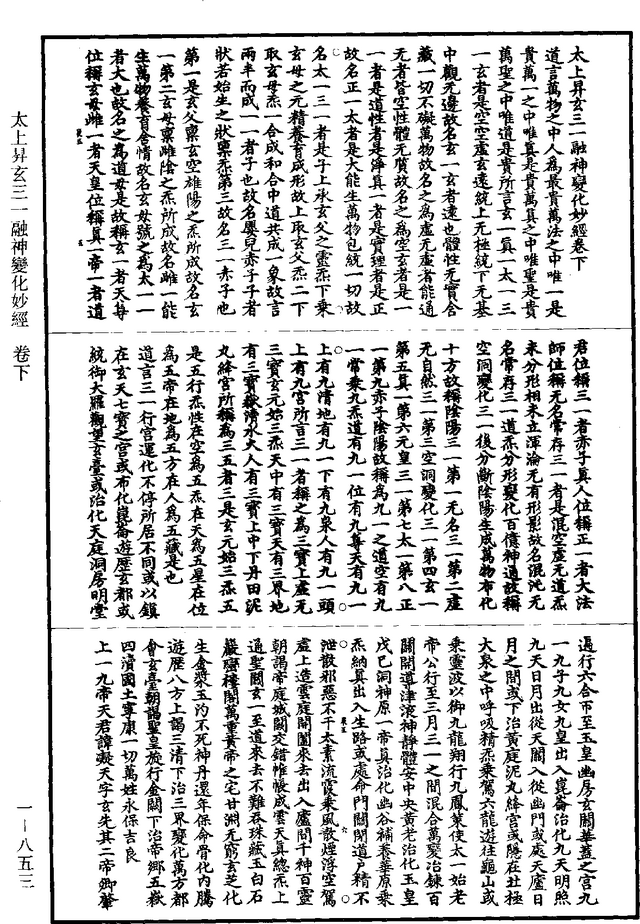 太上昇玄三一融神變化妙經卷下
道言萬物之中人為最貴萬法之中唯一是
貴萬一之中唯真是貴萬真之中唯聖是貴
萬聖之中唯道是貴所言玄一真一太一三
一玄者是空空虛玄遠統上无極統下无基
中觀无邊故名玄一玄者達也體性无實含
藏一切不礙萬物故名之為虛无虛者能通
无者皆空性體无質故名之為空玄者是一
一者是道性者是淨真一者是實理者是正
故名正一太者是大能生萬物包統一切故
名太一三一者是子上承玄父之靈炁下乘
玄母之元精養育成形故上取玄父炁二下
取玄母炁一合成和合中道共成一象故言
兩半而成一一者子也故名嬰兒赤子子者
狀若始生之狀稟炁第三故名三一赤子也
第一是玄父稟玄空雄陽之炁所成故名玄
一第二玄母稟雌陰之炁所成故名雌一能
生萬物養育含情故名玄母號之為太一一
者大也故名之為道母是故稱玄一者天尊
位稱玄母雌一者天皇位稱真一帝一者道
君位稱三一者赤子真人位稱正一者大法
師位稱无名常存三一者是混空虛无道炁
未分形相未立渾淪无有形影故名混沌无
名常存三一道炁分形變化百億神通故稱
空洞變化三一後分斷陰陽生成萬物布化
十方故稱陰陽三一第一无名三一第二虛
无自然三一第三空洞變化三一第四玄一
第五真一第六元皇三一第七太一第八正
一第九赤子陰陽故稱為九一之道空有九
一常乘九炁道有九一位有九尊天有九一
上有九清地有九一下有九泉人有九一頭
上有九宮所言三一者稱之為三寶上虛无
三寶玄元始三炁天中有三寶天有三界地
有三寶嶽瀆水大人有三寶上中下丹田泥
丸絳宮所稱為三五者三是玄元始三炁五
是五行炁性在空為五炁在天為五星在位
為五帝在地為五方在人為五藏是也
道言三一行宮運化不停所居不同或以鎮
在玄天七寶之宮或布化崑崙遊歷玄都或
統御大羅觀望玄臺或治化天庭洞房明堂
遍行六合帀至玉皇幽房玄關華蓋之宮九
一九子九女九皇出入崑崙治化九天明照
九天日月出從天關入從幽門或處天廬日
月之間或下治黃庭泥丸絳宮或隱在社極
大泉之中呼吸精炁乘駕六龍遊往龜山或
乘靈波以御九龍翔行九鳳策使太一始老
帝公行至三月三一之間混合萬變治鍊百
關開導津液神靜體安中央黃老治化玉皇
戊己洞神原一帝真治化幽谷補養華原乘
炁納真出入生路或處命門關閉道戶精不
泄散邪惡不干太素流霞乘風散煙浮空駕
虛上造雲庭開闔來去出入廬間千神百靈
朝謁帝庭城闕交錯帷帳成雲天真總炁上
通聖關玄一至道來去不難吞珠
巖
樓閣萬重黃帝之宅甘淵无窮玄芝化
生金漿玉汋不死神丹還年保命骨化內騰
遊歷八方上謁三清下治三界變化萬方都
會玄臺朝謁聖皇旋行金闕下治帝鄉五嶽
四瀆國土寧康一切萬姓永保吉良
上一九帝天君諱凝天字玄先其二帝卿諱
太上昇玄三一融神變化妙經 卷下
一—八五三